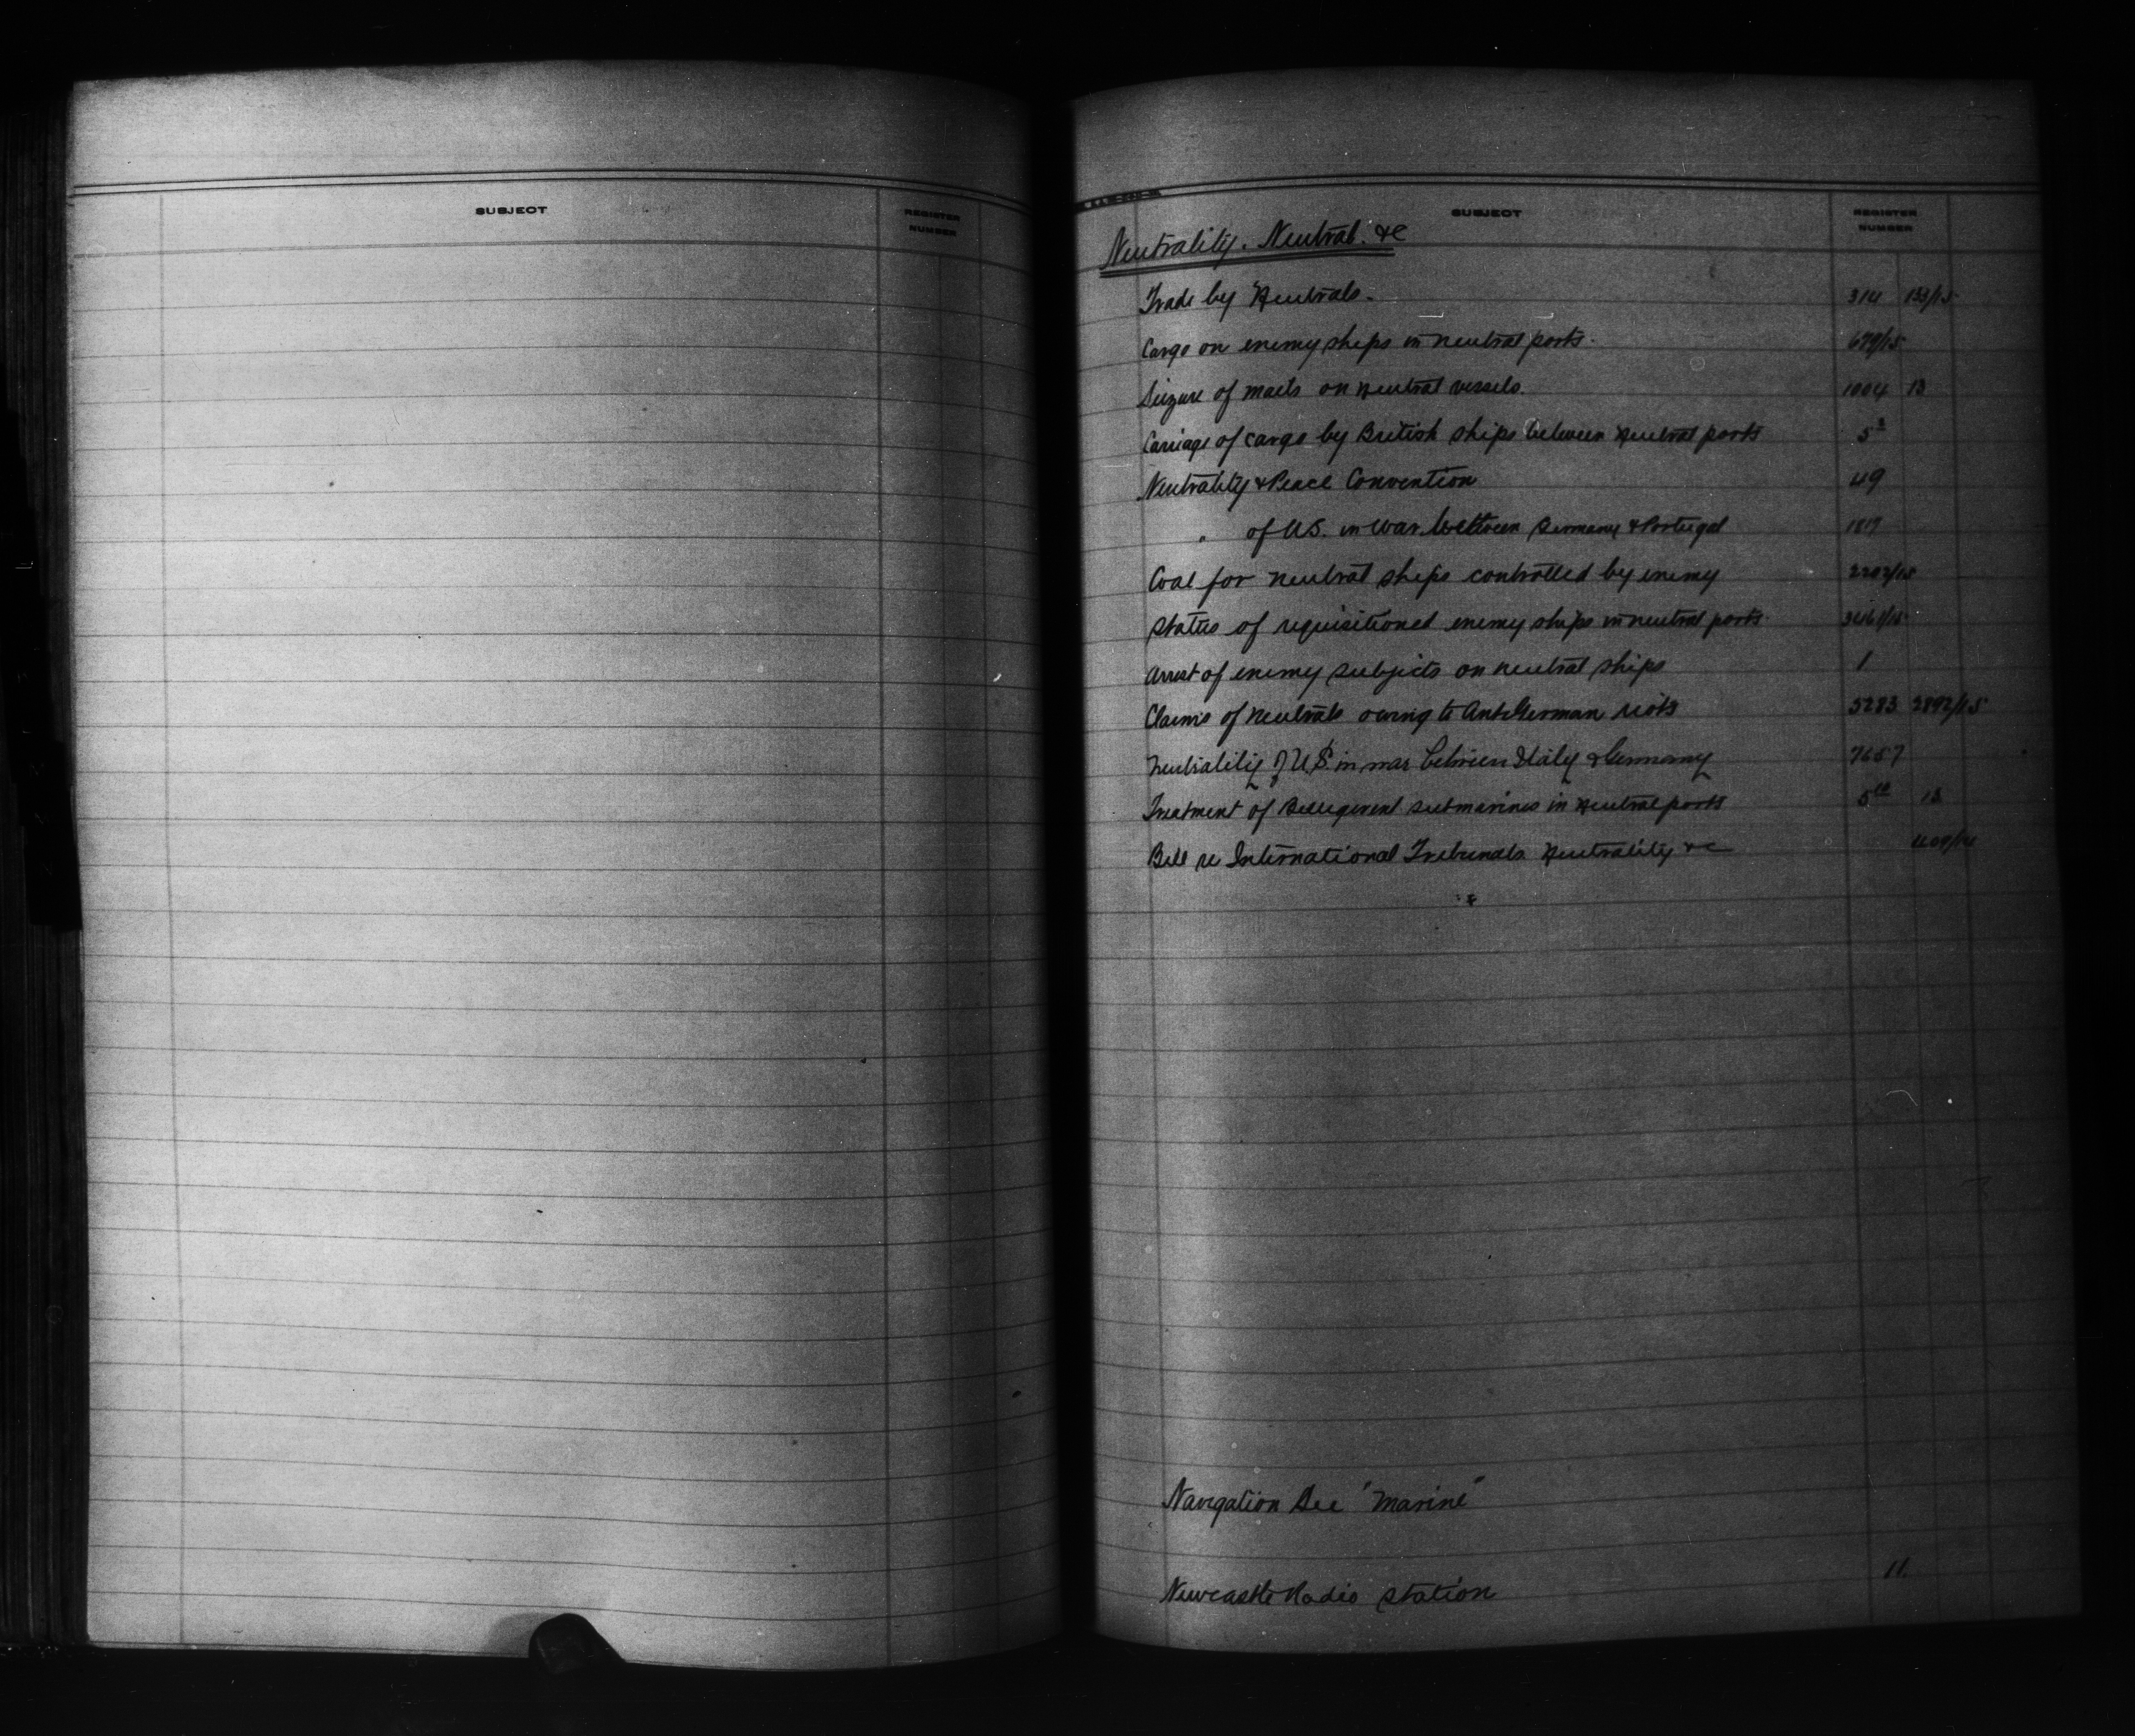 SUBJECT REGISTER NUMBER
SUBJECT REGISTER NUMBER
Neutrality. Neutral. &c
Trade by Neutrals. 314 133/15
Cargo on enemy ships in neutral ports. 679/15
Seizure of mails on neutral vessels. 1004 13
Carriage of cargo by British ships between neutral ports 5
Neutrality & Peace Convention 49
" of U.S. in war between Germany & Portugal
Coal for neutral ships controlled by enemy 2202/15
Status of requisitioned enemy ships in neutral ports
Arrest of enemy subjects on neutral ships 1
Claims of neutrals owing to Anti German riots 5283 2892/15
Neutrality of U.S. in war between Italy & Germany 7657
Treatment of Belligerent submarines in neutral ports 13
Bill re International Tribunals Neutrality &c
Navigation See "Marine"
Newcastle Radio Station 11.